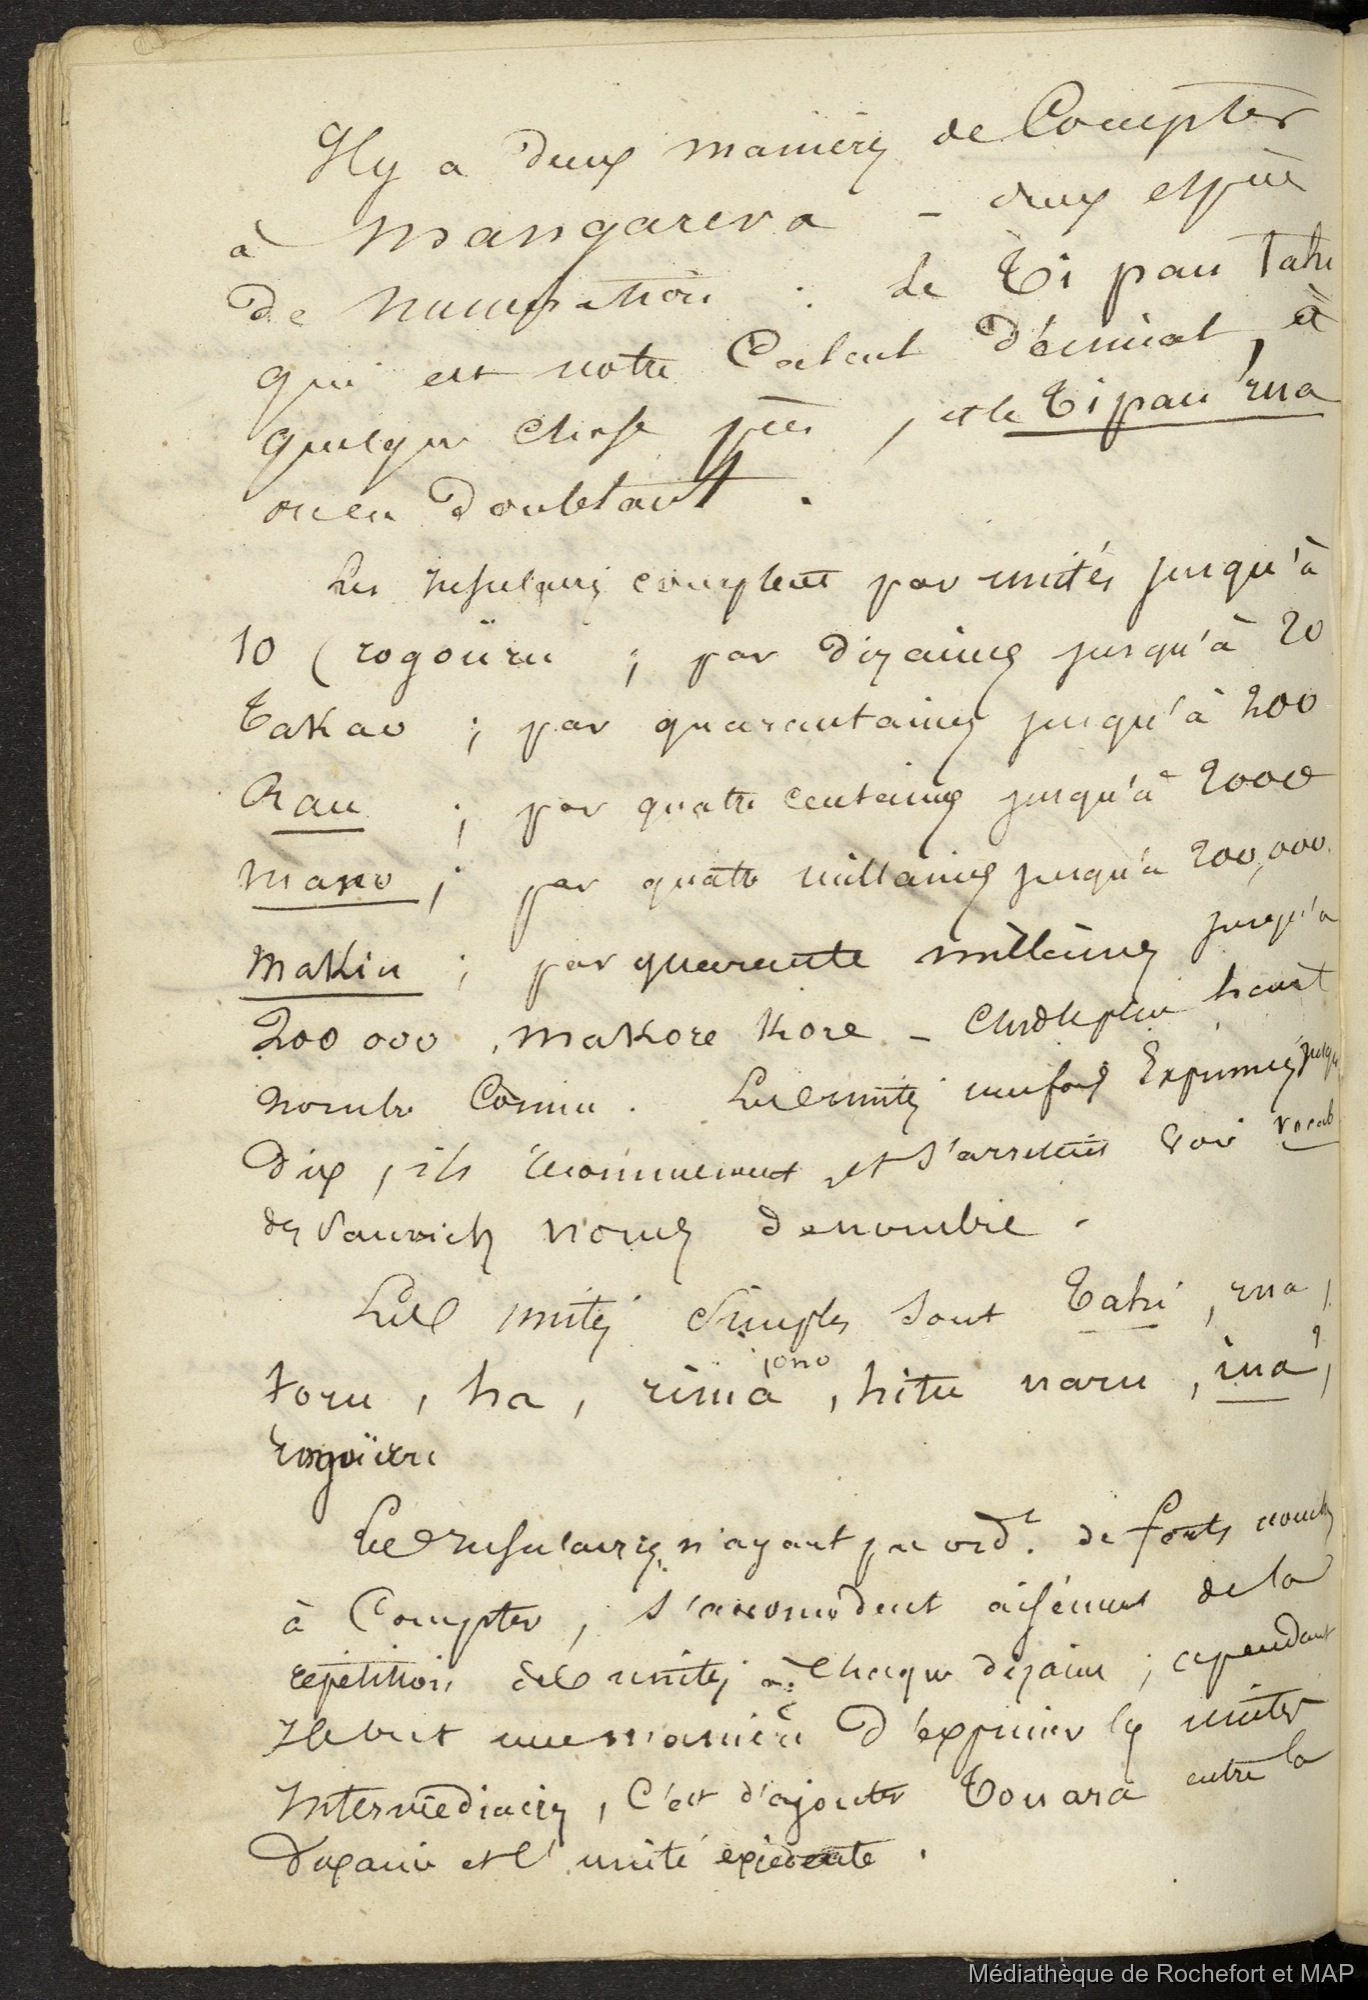 Il y a deux manières de Compter
à Mangareva – deux espèces
de numération : le Ti pau Tahi
qui est notre Calcul décimal, à
quelque chose près, et le Ti pau rua
ou en doublant.
Les Insulaires comptent par unités jusqu'à
10 (rogoüru ; par dizaines jusqu'à 20
Takao ; par quarantaines jusqu'à 200
Rau ; par quatre centaines jusqu'à 2000
mano ; par quatre millaines jusqu'à 200,000.
makiu ; par quarante millaines jusqu'à
200 000, makore kore – C'est le plus haut
nombre Connu. Les unités une fois Exprimées jusqu'à
Dix, ils recommencent et s'arretent Voir vocab
des Sanwich noms de nombre.
Les unités simples sont Tahi, rua,
toru, ha, rima, ono, hitu varu, iva,
rogoüru
Les Insulaires n'ayant pas ordt. de forts nombres
à Compter, s'accomodent aisément de la
répétition des unités à chaque dizaine ; cependant
Il est une manière d'exprimer les unités
Intermédiaires, C'est d'ajouter Touara entre la
Dixaine et l'unité excédente.